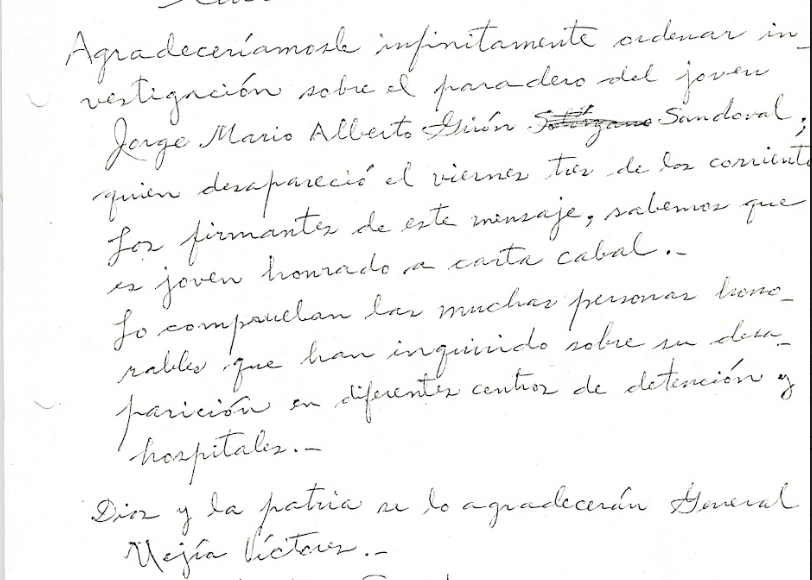 Agradeceríamosle infinitamente ordenar in-
vestigación sobre el paradero del joven
Jorge Mario Alberto Girón Solórzano Sandoval;
quien desapareció el viernes tres de los corriente
Los firmantes de este mensaje, sabemos que
es joven honrado a carta cabal.-
Lo comprueban las muchas personas hono-
rables que han inquirido sobre su desa-
parición en diferentes centros de detención y
hospitales.-
Dios y la patria se lo agradecerán General
Mejía Víctores.-